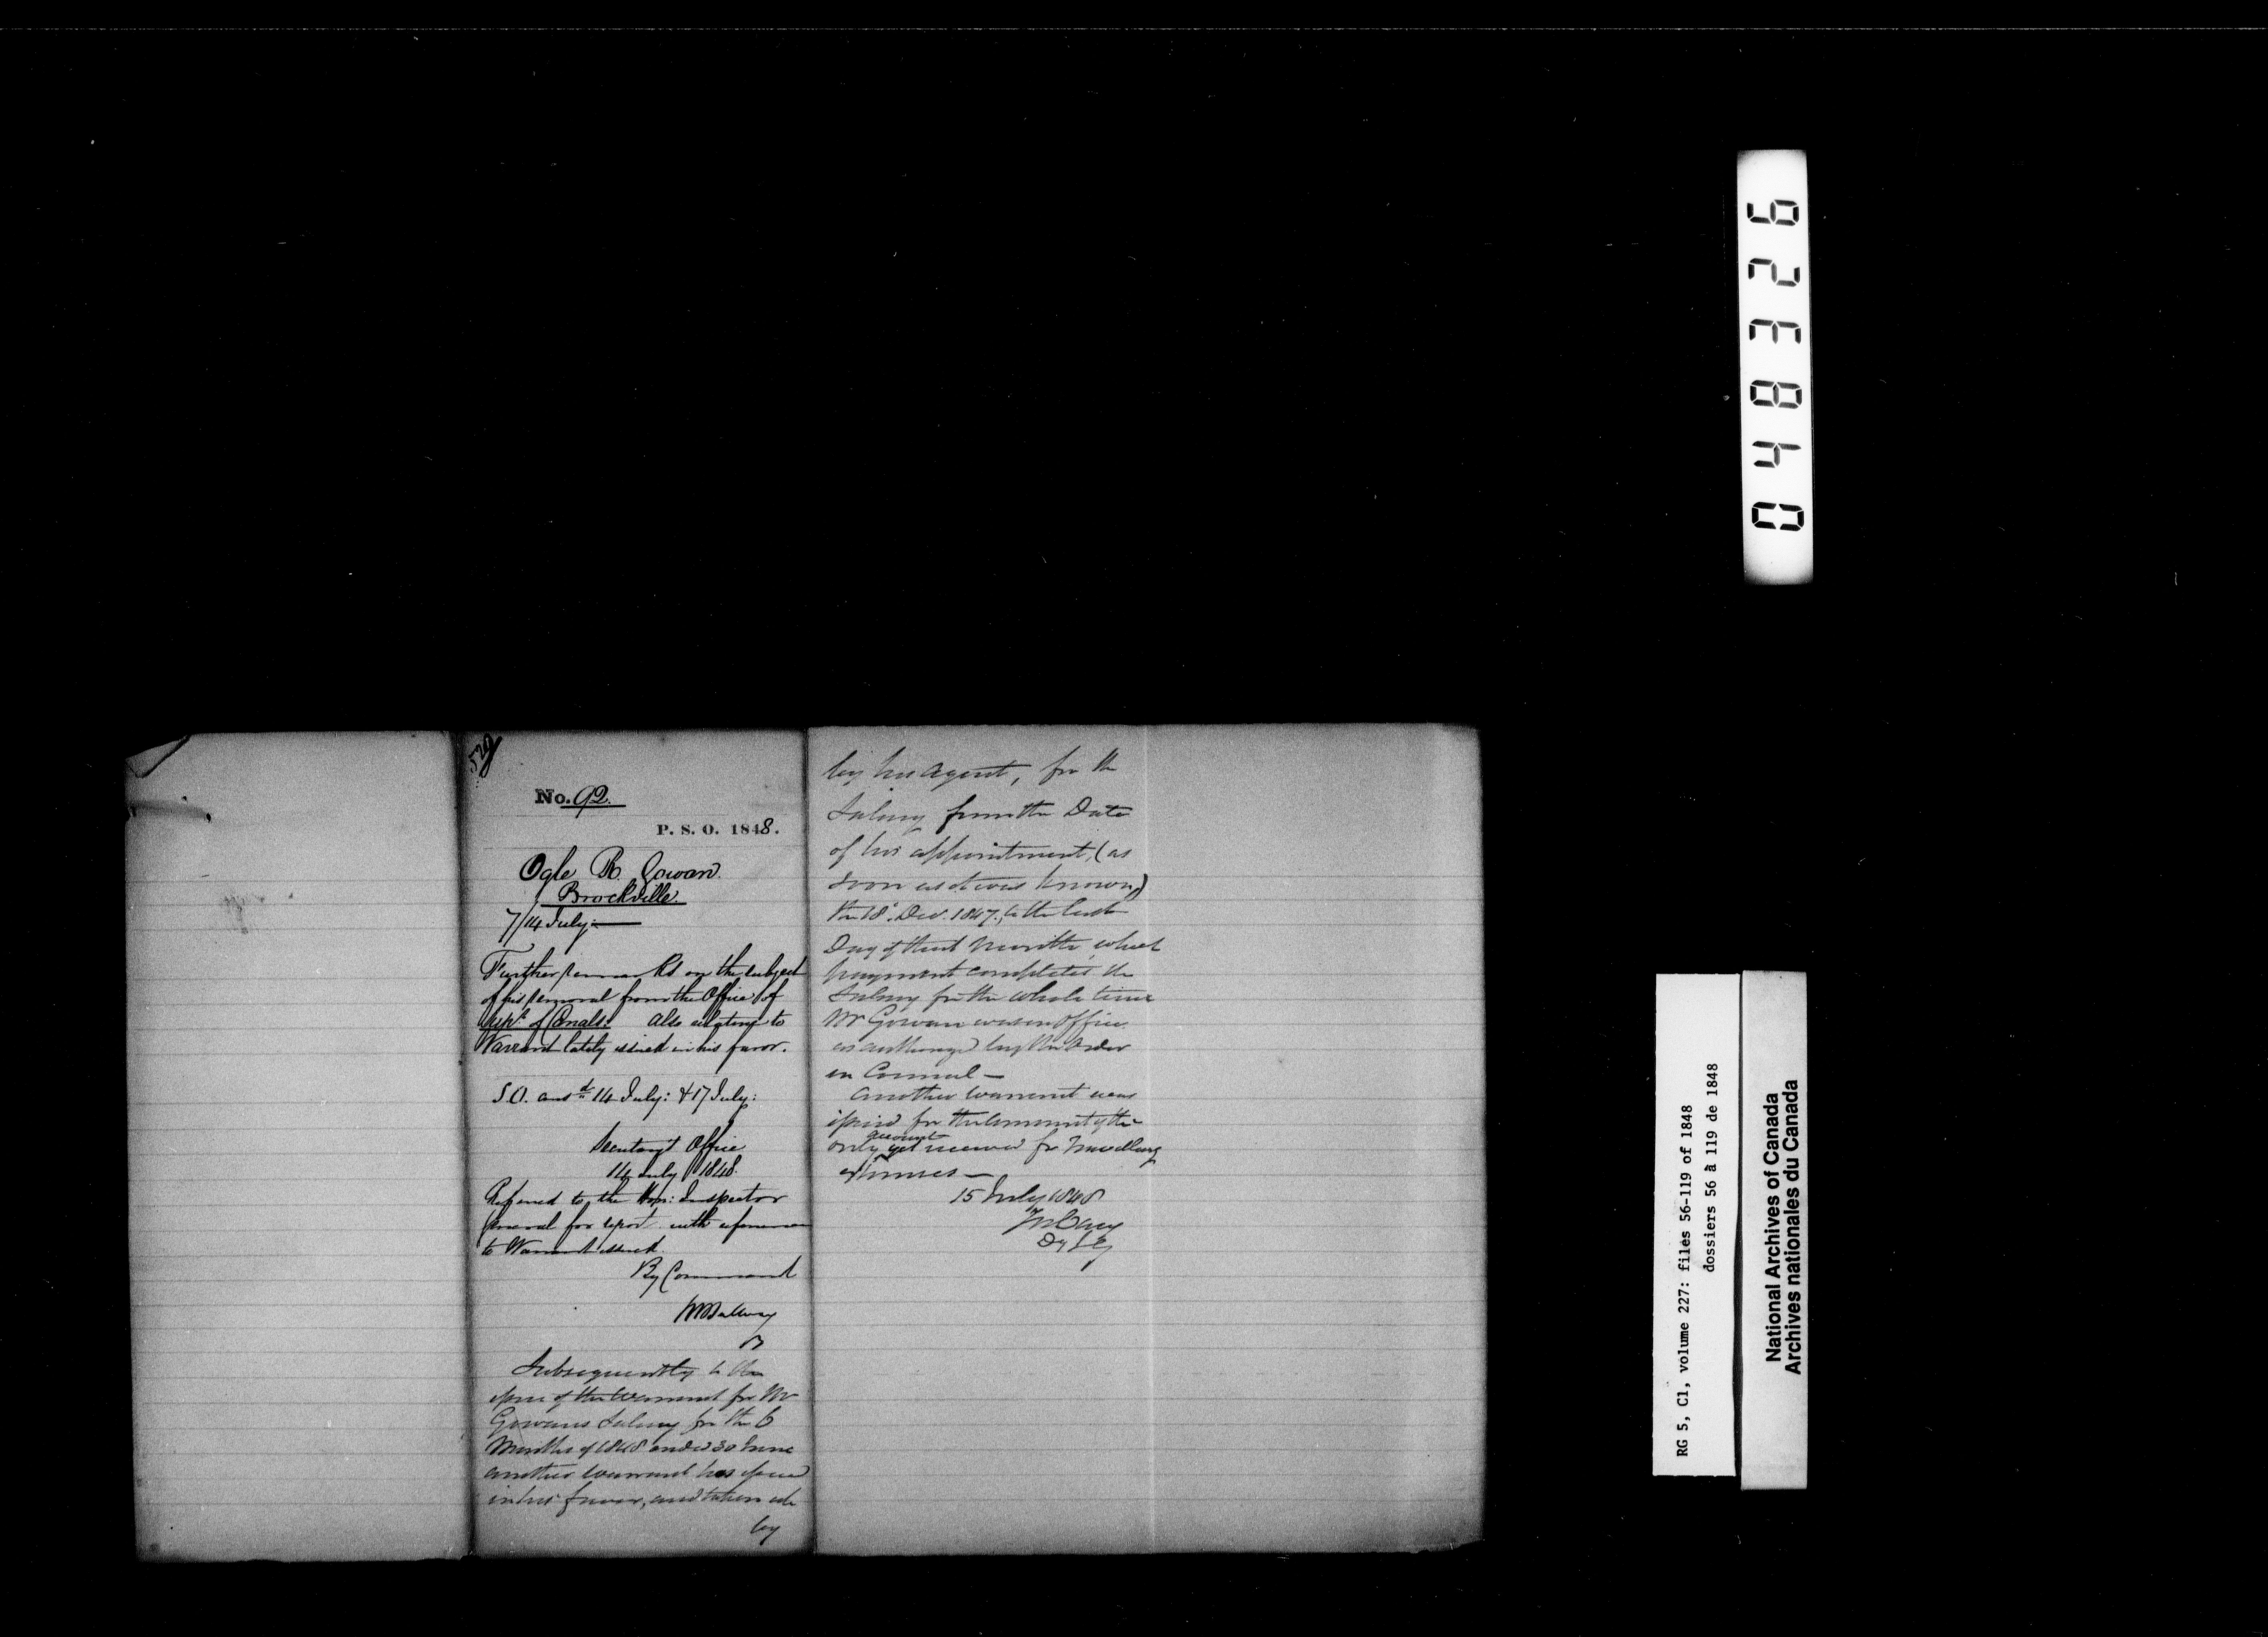 529
No. 92.
P. S. O. 1848.
Ogle R. Gowan.
Brockville.
7/14 July
Further remarks on the subject
of his removal from the Office of
Sup.t of Canals. Also relating to
Warrant lately issued in his favor.
S.O. ans.d 14 July: & 17 July:
Secretary's Office
14 July 1848.
Referred to the Hon: Inspector
General for report with reference
to Warrant issued.
By Command
Subsequently to the
issue of the Warrant for Mr
Gowans Salary for the 6
Months of 1848 ended 30 June
another Warrant has issued
in his favor, and taken out
by
by his Agent, for the
Salary from the Date
of his appointment, (as
soon as it was known)
the 18 Dec. 1847, to the last
Day of that Month, which
payment completes the
Salary for the whole time
Mr Gowan was in Office
as authorized by the Order
in Council —
Another warrant was
issued for the Amount of the
only account yet received for Travelling
expenses —
15 July 1848
Jos Cary
Dy I G
048326
RG 5, C1, volume 227: files 56-119 of 1848
dossiers 56 à 119 de 1848
National Archives of Canada
Archives nationales du Canada